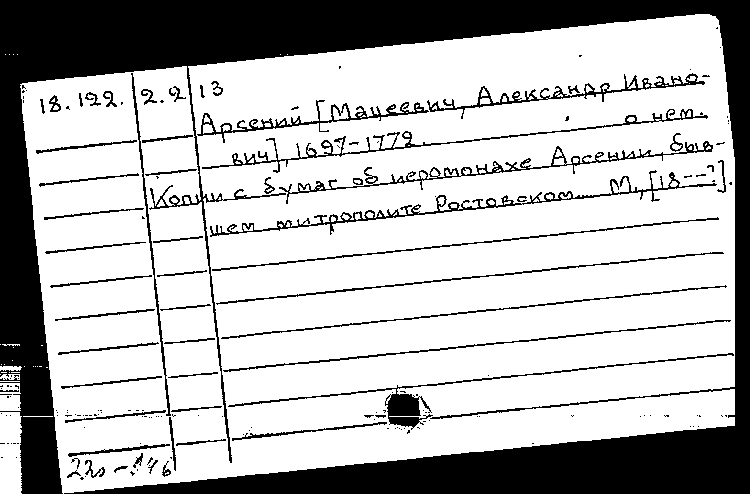 18.122. 2.2 13
Арсений [Мацеевич, Александр Ивано-
вич], 1697-1772. о нем.
Копии с бумаг об иеромонахе Арсении, быв-
шем митрополите Ростовском. М., [18--?].